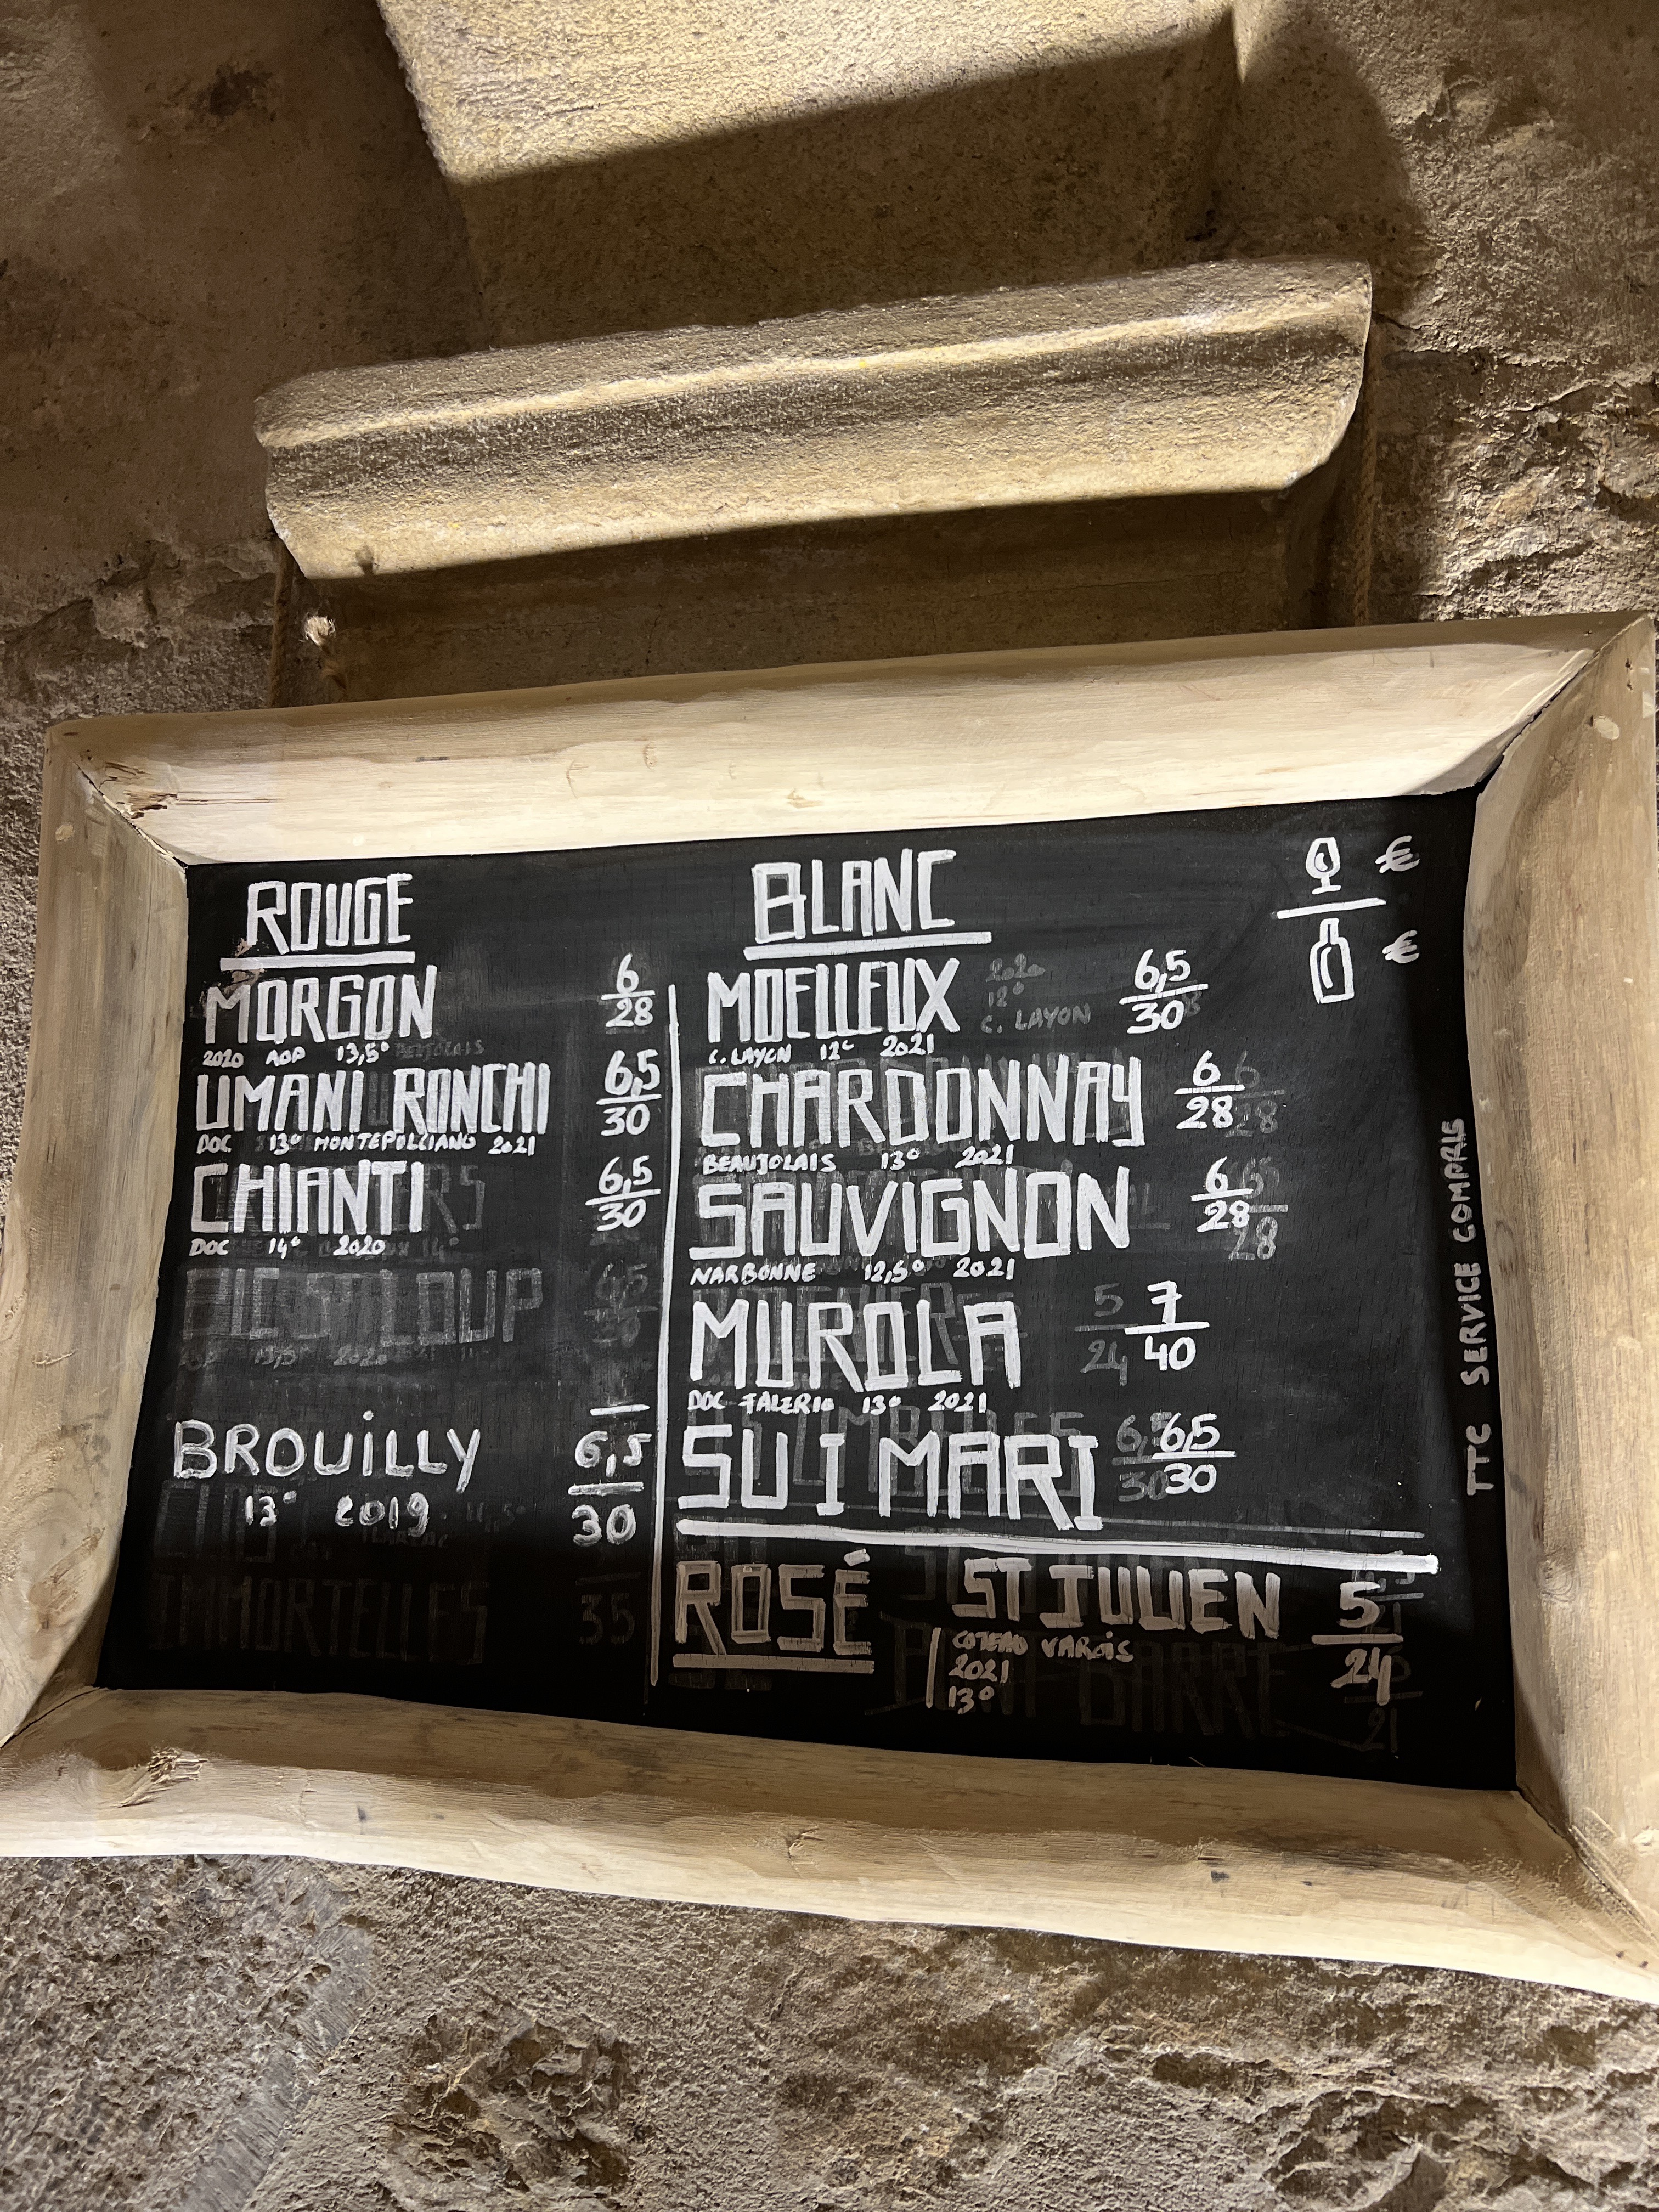 ROUGE
MORGON 6/28
2020 AOP 13,5°
UMANI RONCHI 6,5/30
DOC 13° MONTEPULCIANO 2021
CHIANTI 6,5/30
DOC 14° 2020
BROUiLLY 6,5/30
13° 2019
IMMORTELLES 35
BLANC
€
€
MOELLEUX 6,5/30
2020
12°
C. LAYON
C. LAYON 12° 2021
CHARDONNAY 6/28
BEAUJOLAIS 13° 2021
SAUVIGNON 6/28
NARBONNE 12,5° 2021
MUROLA 7/40
DOC FALERIO 13° 2021
SUI MARI 6,5/30
ROSÉ
ST JULIEN 5/24
COTEAU VAROIS
2021
13°
TTC SERVICE COMPRIS